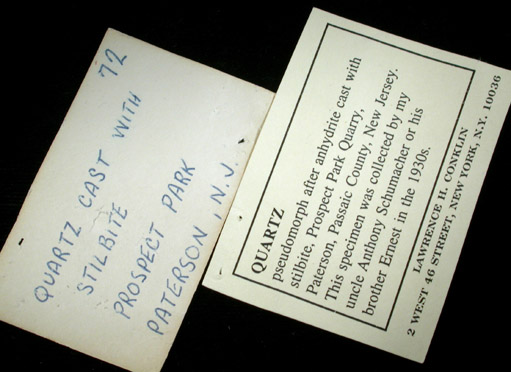 72
QUARTZ CAST WITH
STILBITE
PROSPECT PARK
PATERSON, N.J.
QUARTZ
pseudomorph after anhydrite cast with
stilbite, Prospect Park Quarry,
Paterson, Passaic County, New Jersey.
This specimen was collected by my
uncle Anthony Schumacher or his
brother Ernest in the 1930s.
LAWRENCE H. CONKLIN
2 WEST 46 STREET, NEW YORK, N.Y. 10036